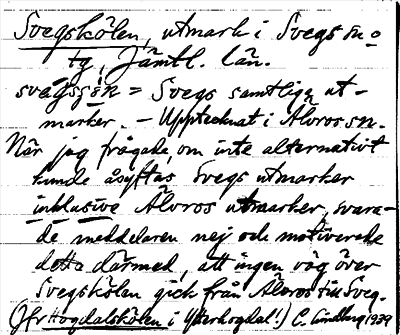 Svegskölen, utmark i Svegs sn o
tg, Jämtl. län.
= Svegs samtliga ut-
marker. - Upptecknat i Älvros sn.
När jag frågade, om inte alternativt
kunde åsyftas Svegs utmarker
inklusive Älvros utmarker, svara-
de meddelaren nej och motiverade
detta därmed, att ingen väg över
Svegskölen gick från Älvros till Sveg.
(Jfr Hogdalskölen i Ytterhogdal!) C. Lindberg 1939